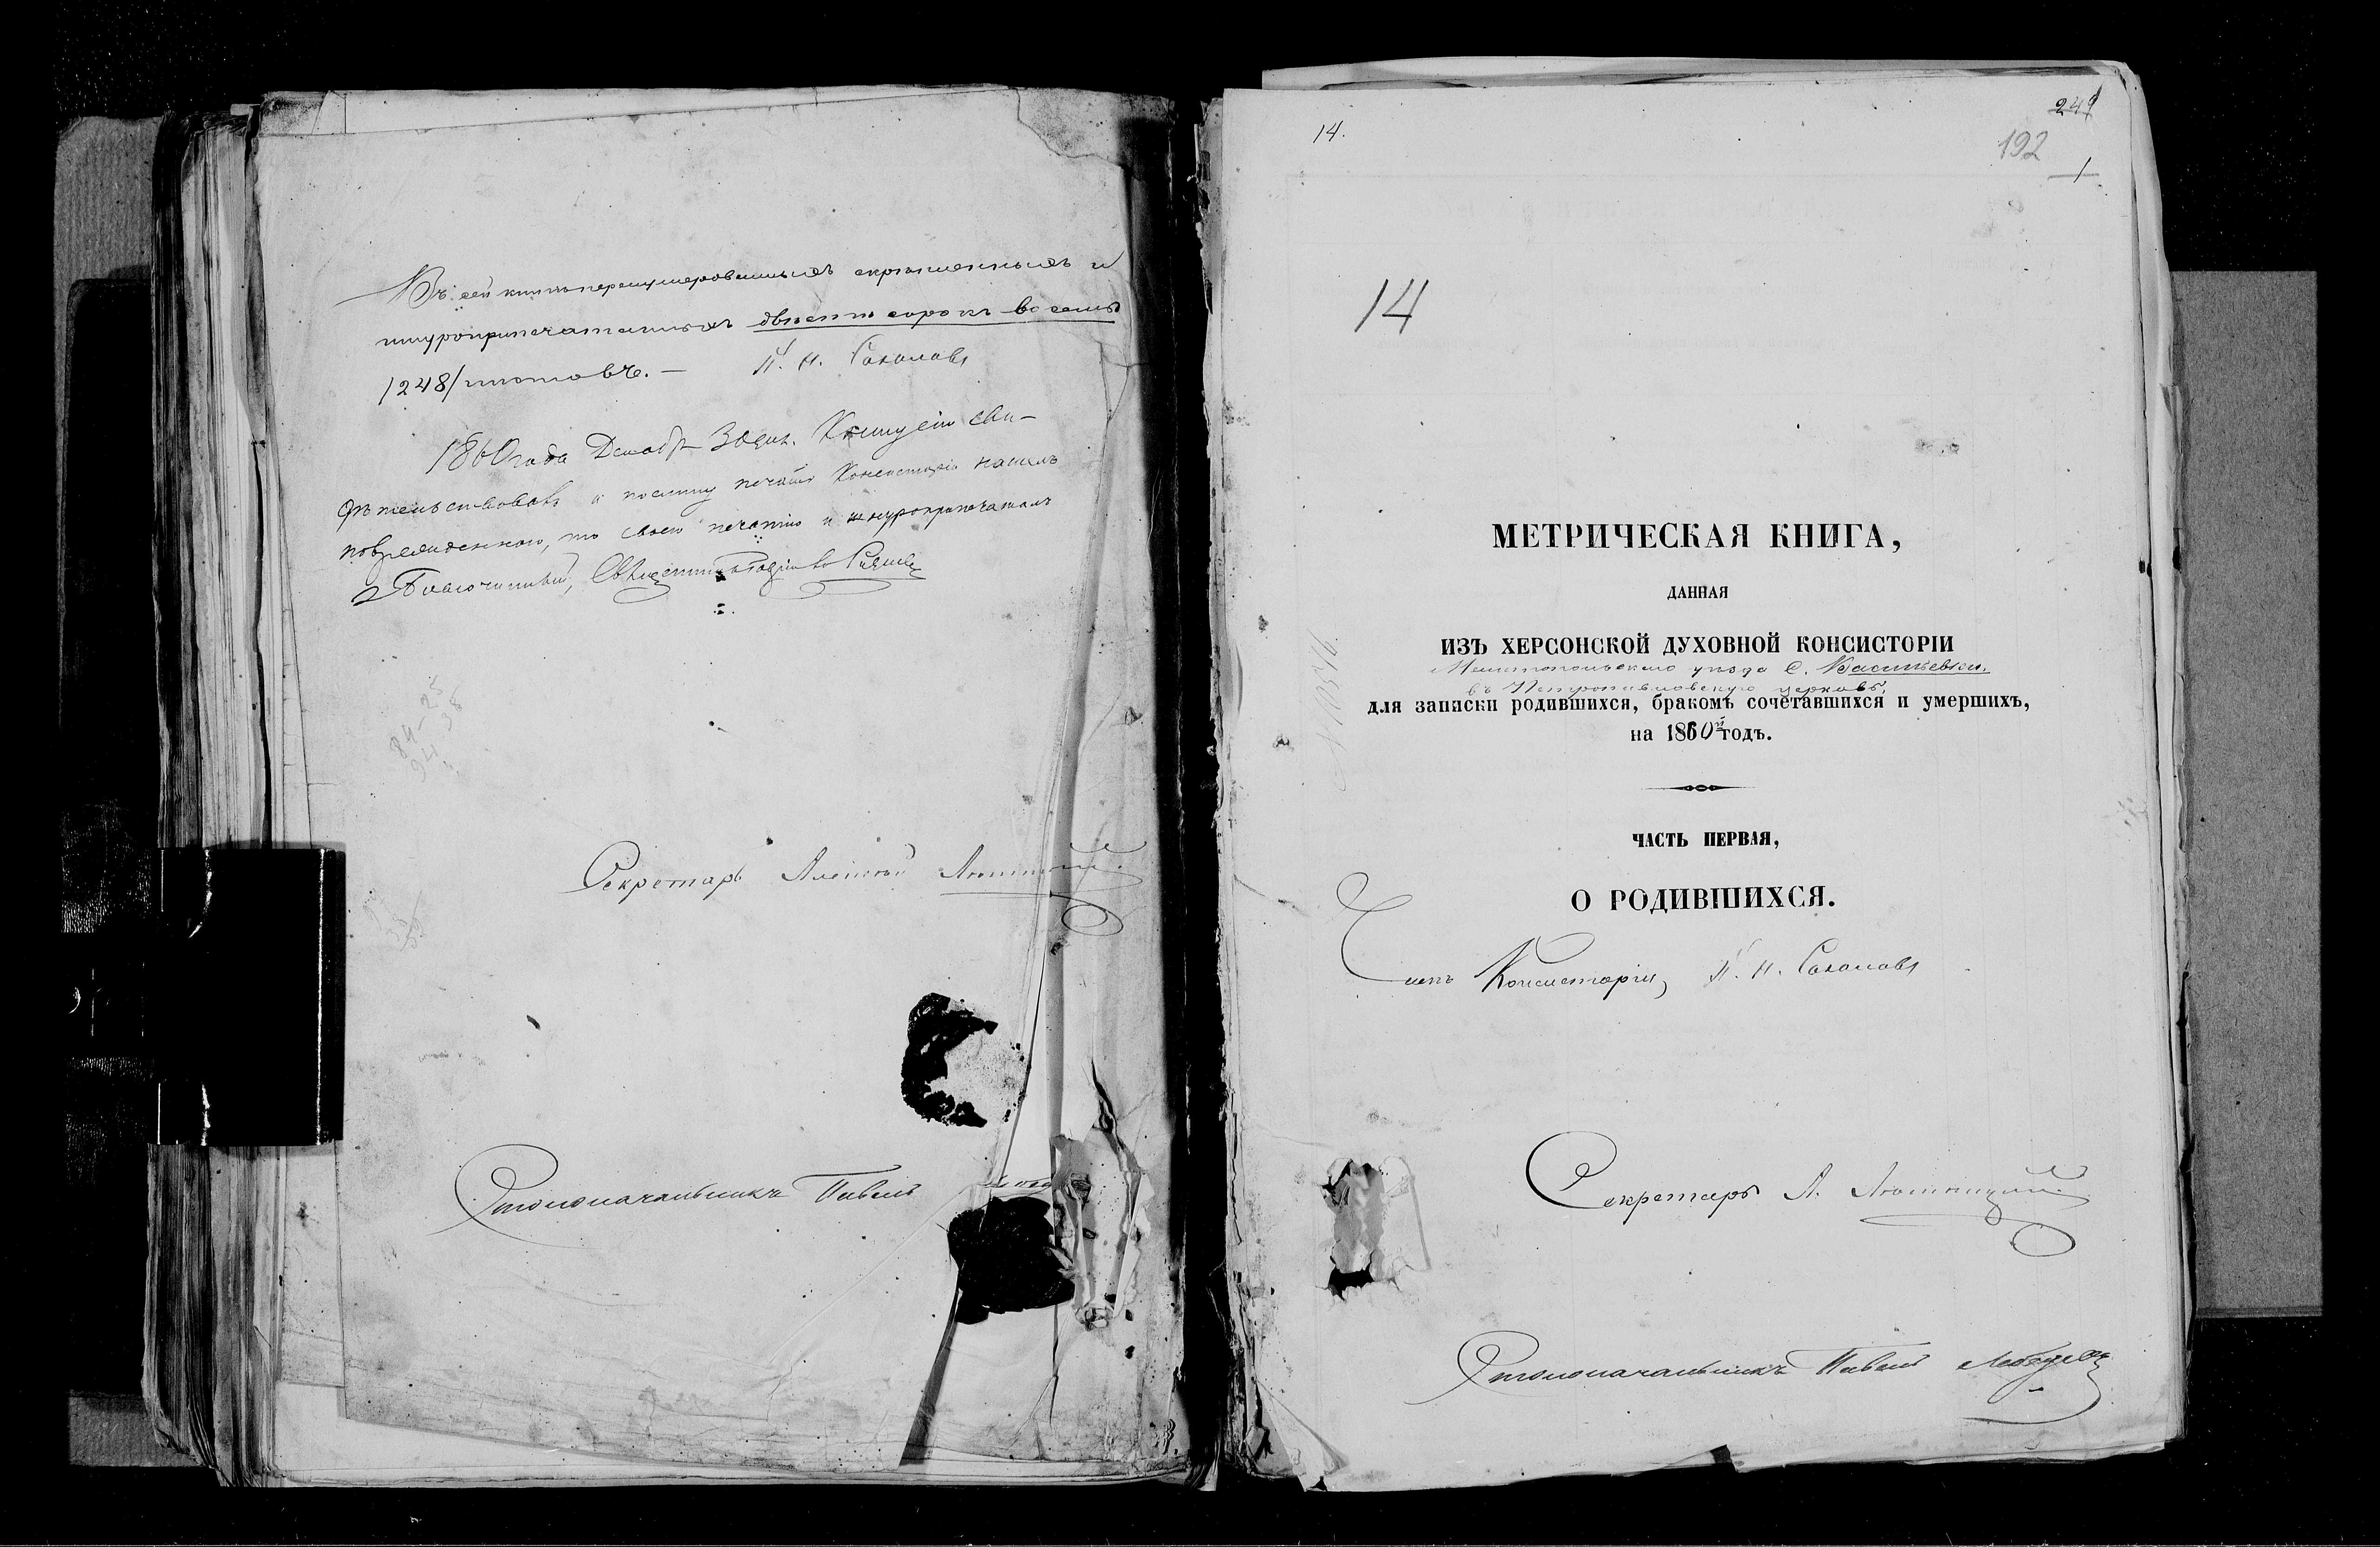 Въ сей книгѣ перенумерованныхъ скрѣпленныхъ и
шнуроприпечатанныхъ двѣсти сорокъ восемь
/248/ листовъ. — П. Н. Соколовъ
1860 года Декабр 30 дня. Книгу сію сви-
дѣтельствовалъ и поелику печать Консисторіи нашелъ
поврежденною, то своею печатью и шнуроприпечаталъ
Благочинный, Священникъ
84-25
94 38
Секретарь Алексѣй
Столоначальникъ Павелъ
14.
249
192
1
14
МЕТРИЧЕСКАЯ КНИГА,
ДАННАЯ
ИЗЪ ХЕРСОНСКОЙ ДУХОВНОЙ КОНСИСТОРІИ
Мелитопольскаго уѣзда С. Васильевки.
въ Петропавловскую церковь.
для записки родившихся, бракомъ сочетавшихся и умершихъ,
на 1860й годъ.
ЧАСТЬ ПЕРВАЯ,
О РОДИВШИХСЯ.
Членъ Консисторіи, П. Н. Соколовъ
Секретарь А.
Столоначальникъ Павелъ Лебедевъ